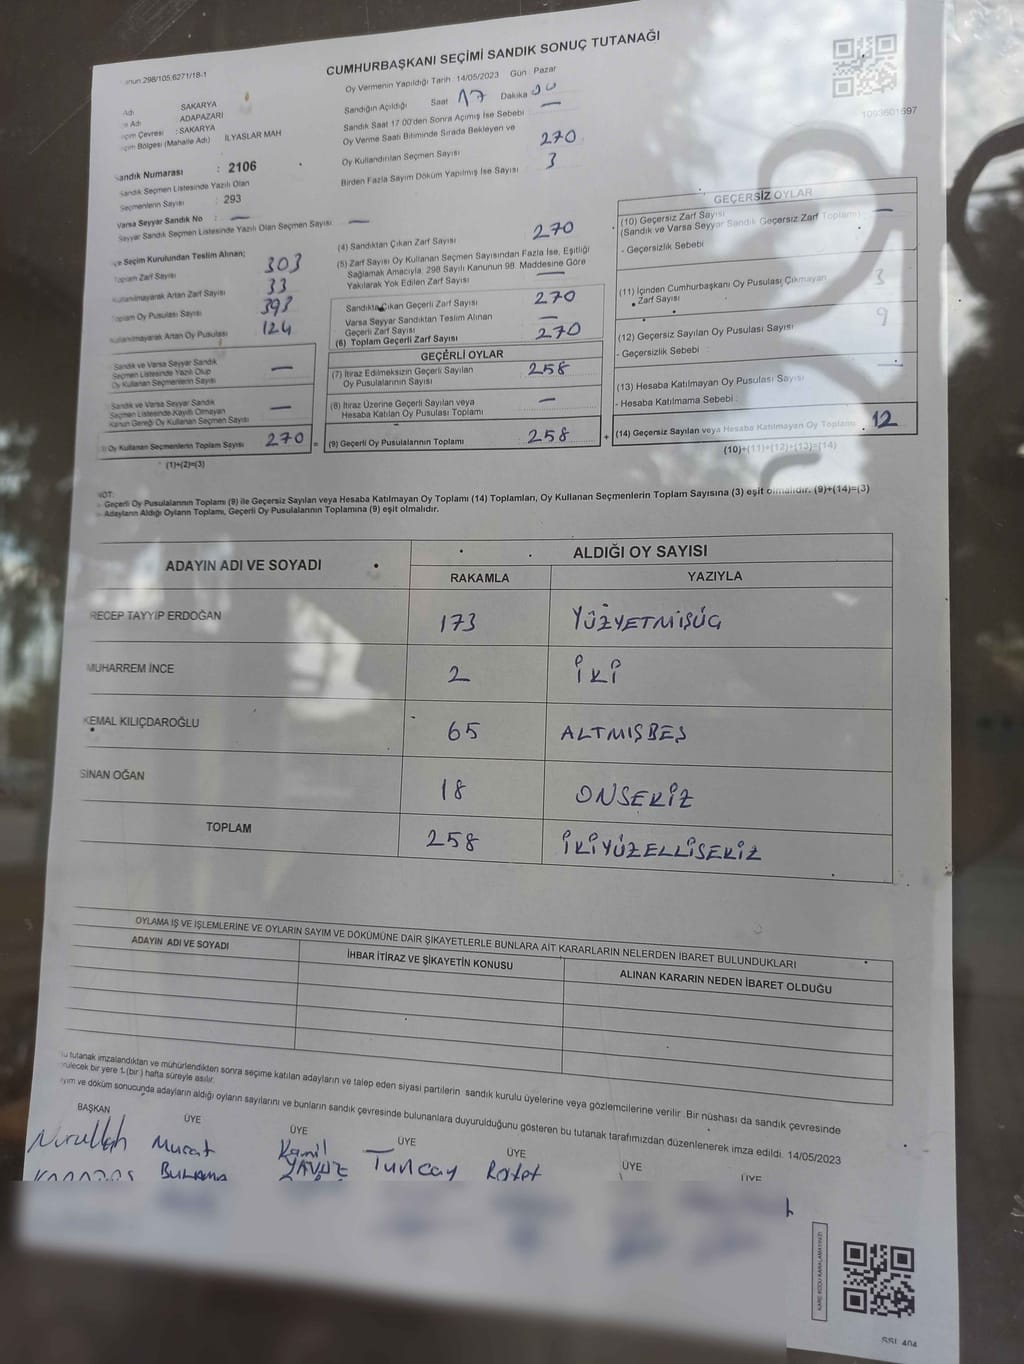 CUMHURBAŞKANI SEÇİMİ SANDIK SONUÇ TUTANAĞI
298/105,6271/18-1
Oy Vermenin Yapıldığı Tarih 14/05/2023 Gün Pazar
Sandığın Açıldığı Saat 17 Dakika 00
Sandık Saat 17:00'den Sonra Açımış İse Sebebi —
Oy Verme Saati Bitiminde Sırada Bekleyen ve
Oy Kullandırılan Seçmen Sayısı 270
Birden Fazla Sayım Döküm Yapılmış İse Sayısı 3
1093601697
Adı SAKARYA
Adı : ADAPAZARI
Çevresi : SAKARYA
Bölgesi (Mahalle Adı) İLYASLAR MAH
Sandık Numarası : 2106
Sandık Seçmen Listesinde Yazılı Olan
Seçmenlerin Sayısı : 293
Varsa Seyyar Sandık No —
Seyyar Sandık Seçmen Listesinde Yazılı Olan Seçmen Sayısı —
Seçim Kurulundan Teslim Alınan;
Toplam Zarf Sayısı 303
Kullanılmayarak Artan Zarf Sayısı 33
Toplam Oy Pusulası Sayısı 393
Kullanılmayarak Artan Oy Pusulası 124
Sandık ve Varsa Seyyar Sandık
Seçmen Listesinde Yazılı Olup
Oy Kullanan Seçmenlerin Sayısı —
Sandık ve Varsa Seyyar Sandık
Seçmen Listesinde Kayıtlı Olmayan
Kanun Gereği Oy Kullanan Seçmen Sayısı —
Oy Kullanan Seçmenlerin Toplam Sayısı 270 =
(1)+(2)=(3)
(4) Sandıktan Çıkan Zarf Sayısı 270
(5) Zarf Sayısı Oy Kullanan Seçmen Sayısından Fazla İse, Eşitliği
Sağlamak Amacıyla, 298 Sayılı Kanunun 98. Maddesine Göre
Yakılarak Yok Edilen Zarf Sayısı —
Sandıktan Çıkan Geçerli Zarf Sayısı 270
Varsa Seyyar Sandıktan Teslim Alınan
Geçerli Zarf Sayısı —
(6) Toplam Geçerli Zarf Sayısı 270
GEÇERLİ OYLAR
(7) İtiraz Edilmeksizin Geçerli Sayılan
Oy Pusulalarının Sayısı 258
(8) İtiraz Üzerine Geçerli Sayılan veya
Hesaba Katılan Oy Pusulası Toplamı —
(9) Geçerli Oy Pusulalarının Toplamı 258 +
GEÇERSİZ OYLAR
(10) Geçersiz Zarf Sayısı —
(Sandık ve Varsa Seyyar Sandık Geçersiz Zarf Toplamı)
- Geçersizlik Sebebi
(11) İçinden Cumhurbaşkanı Oy Pusulası Çıkmayan
Zarf Sayısı 3
(12) Geçersiz Sayılan Oy Pusulası Sayısı 9
- Geçersizlik Sebebi :
(13) Hesaba Katılmayan Oy Pusulası Sayısı —
- Hesaba Katılmama Sebebi :
(14) Geçersiz Sayılan veya Hesaba Katılmayan Oy Toplamı 12
(10)+(11)+(12)+(13)=(14)
NOT:
- Geçerli Oy Pusulalarının Toplamı (9) ile Geçersiz Sayılan veya Hesaba Katılmayan Oy Toplamı (14) Toplamları, Oy Kullanan Seçmenlerin Toplam Sayısına (3) eşit olmalıdır. (9)+(14)=(3)
- Adayların Aldığı Oyların Toplamı, Geçerli Oy Pusulalarının Toplamına (9) eşit olmalıdır.
ADAYIN ADI VE SOYADI
ALDIĞI OY SAYISI
RAKAMLA YAZIYLA
RECEP TAYYİP ERDOĞAN 173 YÜZYETMİŞÜÇ
MUHARREM İNCE 2 İKİ
KEMAL KILIÇDAROĞLU 65 ALTMIŞBEŞ
SİNAN OĞAN 18 ONSEKİZ
TOPLAM 258 İKİYÜZELLİSEKİZ
OYLAMA İŞ VE İŞLEMLERİNE VE OYLARIN SAYIM VE DÖKÜMÜNE DAİR ŞİKAYETLERLE BUNLARA AİT KARARLARIN NELERDEN İBARET BULUNDUKLARI
ADAYIN ADI VE SOYADI İHBAR İTİRAZ VE ŞİKAYETİN KONUSU ALINAN KARARIN NEDEN İBARET OLDUĞU
tutanak imzalandıktan ve mühürlendikten sonra seçime katılan adayların ve talep eden siyasi partilerin sandık kurulu üyelerine veya gözlemcilerine verilir. Bir nüshası da sandık çevresinde
bir yere 1 (bir) hafta süreyle asılır.
ve döküm sonucunda adayların aldığı oyların sayılarını ve bunların sandık çevresinde bulunanlara duyurulduğunu gösteren bu tutanak tarafımızdan düzenlenerek imza edildi. 14/05/2023
BAŞKAN ÜYE ÜYE ÜYE ÜYE ÜYE ÜYE
Nurullah Murat Kamil Tuncay
YAVUZ
KARE KODU KARALAMAYINIZ!
SSI 404